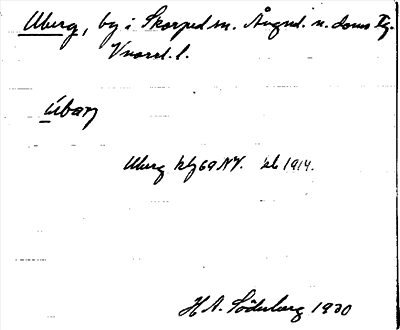 Uberg, by i Skorped sn. Ångml. n. doms Tg.
Vnorrl. l.
Úbarj
Uberg klj 69 NV. xb 1914.
H A. Söderberg 1930